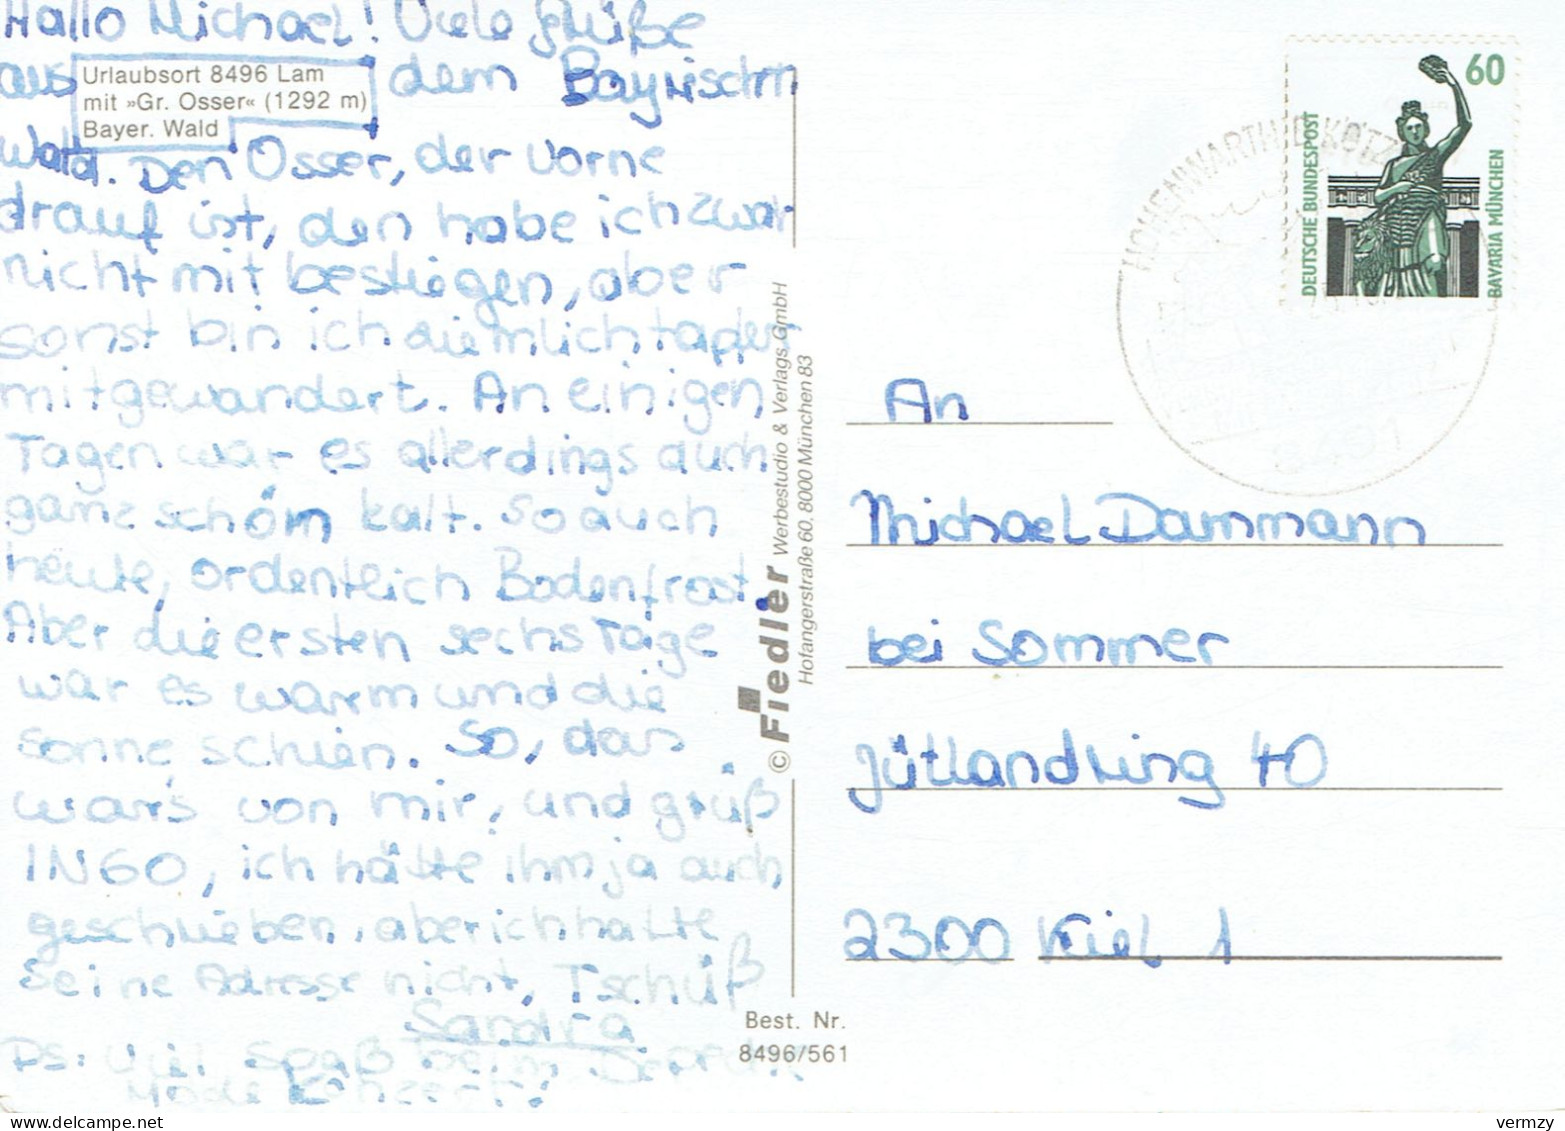 Hallo Michael! Viele Grüße
aus dem Bayrischen
Urlaubsort 8496 Lam
mit »Gr. Osser« (1292 m)
Bayer. Wald
Wald. Den Osser, der vorne
drauf ist, den habe ich zwar
nicht mit bestiegen, aber
sonst bin ich ziemlich tapfer
mitgewandert. An einigen
Tagen war es allerdings auch
ganz schön kalt. So auch
heute, ordentlich Bodenfrost.
Aber die ersten sechs Tage
war es warm und die
Sonne schien. So, das
war's von mir, und grüß
INGO, ich hätte ihm ja auch
geschrieben, aber ich hatte
seine Adresse nicht, Tschüß
Sandra
PS: Viel Spaß beim Depeche
Mode Konzert!
© Fiedler Werbestudio & Verlags GmbH
Hofangerstraße 60, 8000 München 83
Best. Nr.
8496/561
60
DEUTSCHE BUNDESPOST
BAVARIA MÜNCHEN
HOHENWARTH B KÖTZ
8491
An
Michael Dammann
bei Sommer
Jütlandring 40
2300 Kiel 1
vermzy